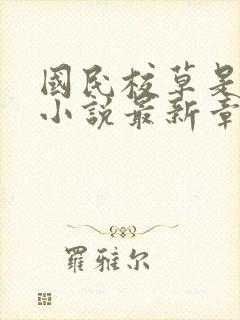 國民校草是
小說最新章
羅雅尔